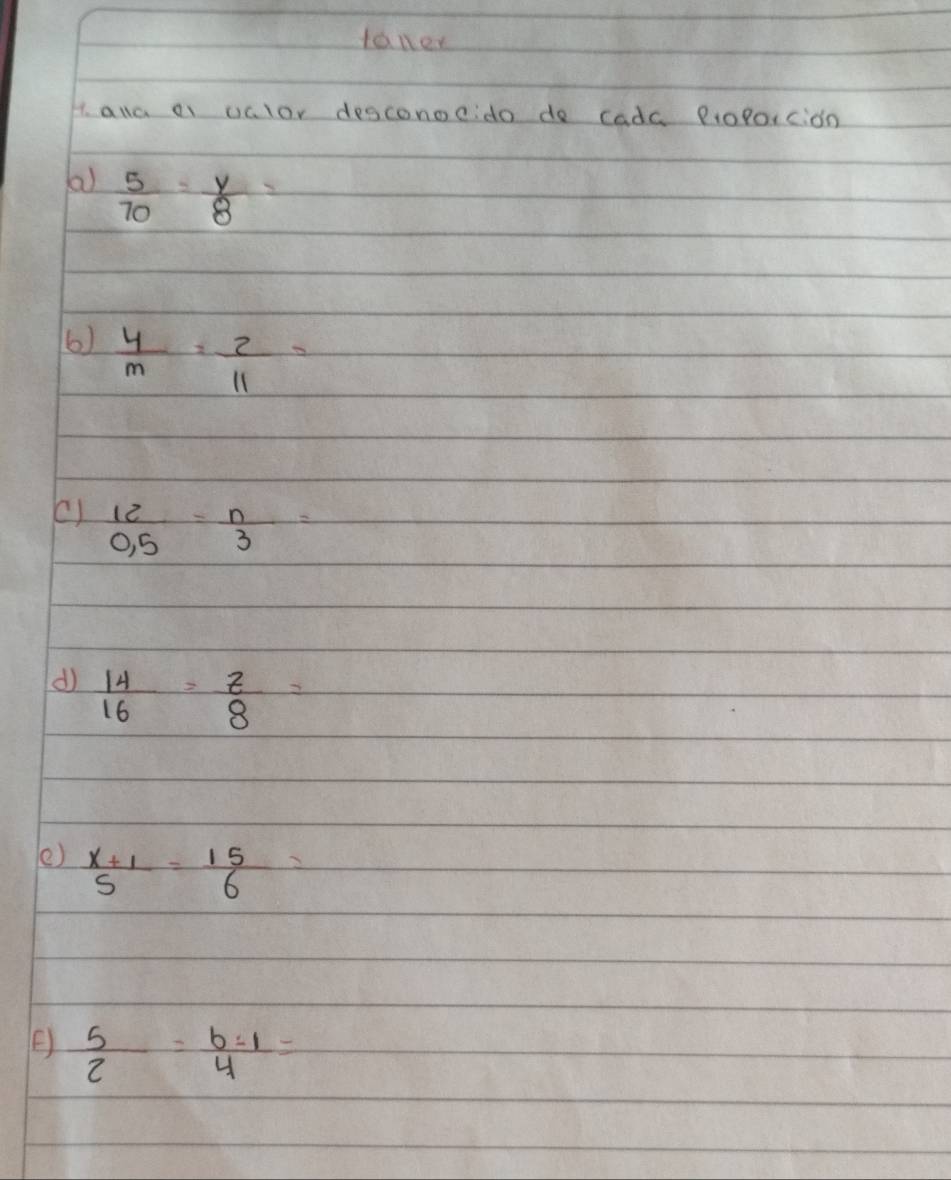 taller
Halla el valor desconocido de cada proporción
a) 5/70 = y/8 =
b) 4/m = 2/11 =
c) 12/0,5 = n/3 =
d) 14/16 = z/8 =
e) x+1/5 = 15/6 =
F) 5/2 = b-1/4 =